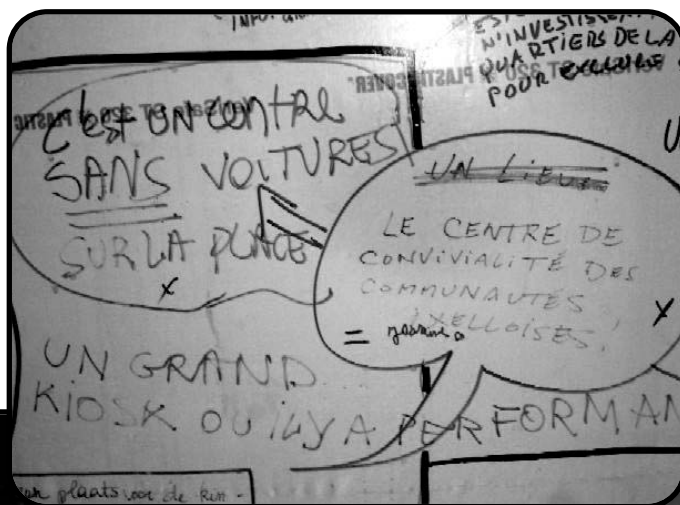 N'INVESTISSENT
QUARTIERS DE LA
POUR EXCLURE
C'EST UN CENTRE
SANS VOITURES
SUR LA PLACE
x
UN LIEU
LE CENTRE DE
CONVIVIALITÉ DES
COMMUNAUTÉS
IXELLOISES!
x
=
UN GRAND
KIOSK OU iL Y A PERFORMAN
plaats voor de kin-